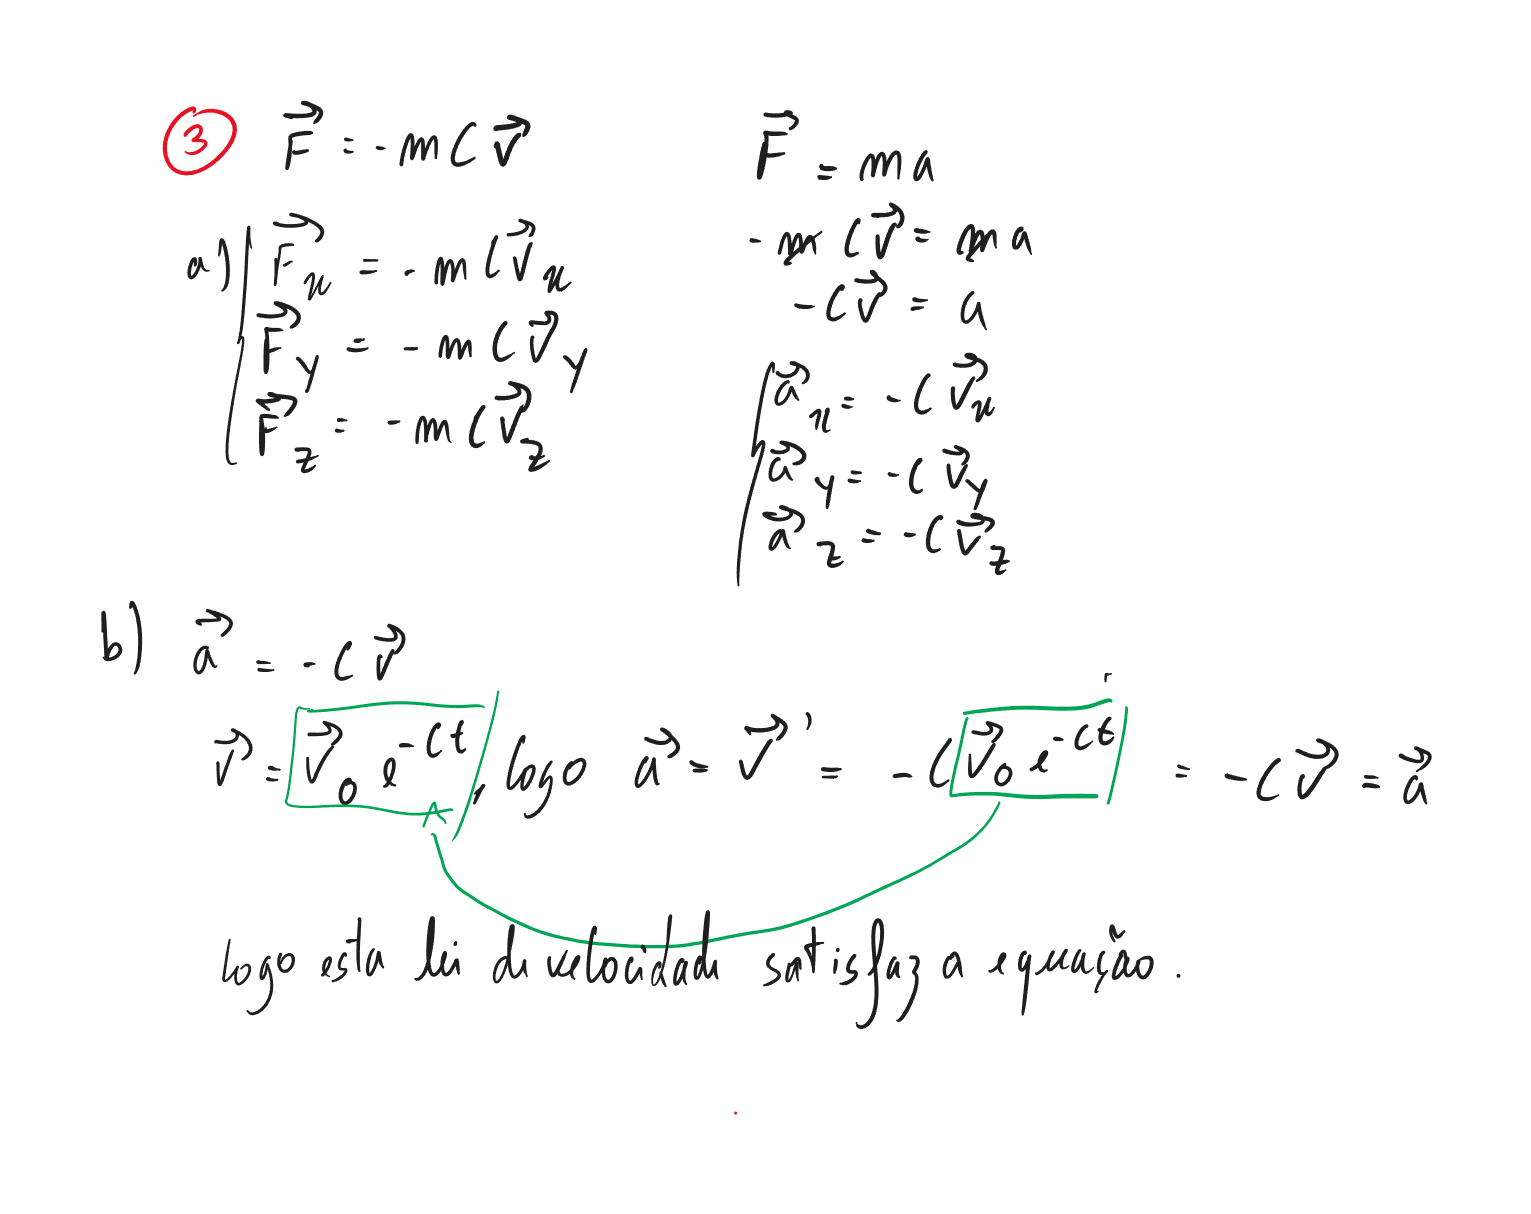 3 F⃗ = -mCv⃗
a) F⃗x = -mCv⃗x
F⃗y = -mCv⃗y
F⃗z = -mCv⃗z
F⃗ = ma
-mCv⃗ = ma
-Cv⃗ = a
a⃗x = -Cv⃗x
a⃗y = -Cv⃗y
a⃗z = -Cv⃗z
b) a⃗ = -Cv⃗
v⃗ = v⃗₀ e^-Ct, logo a⃗ = v⃗' = -Cv⃗₀ e^-Ct = -Cv⃗ = a⃗
logo esta lei de velocidade satisfaz a equação.